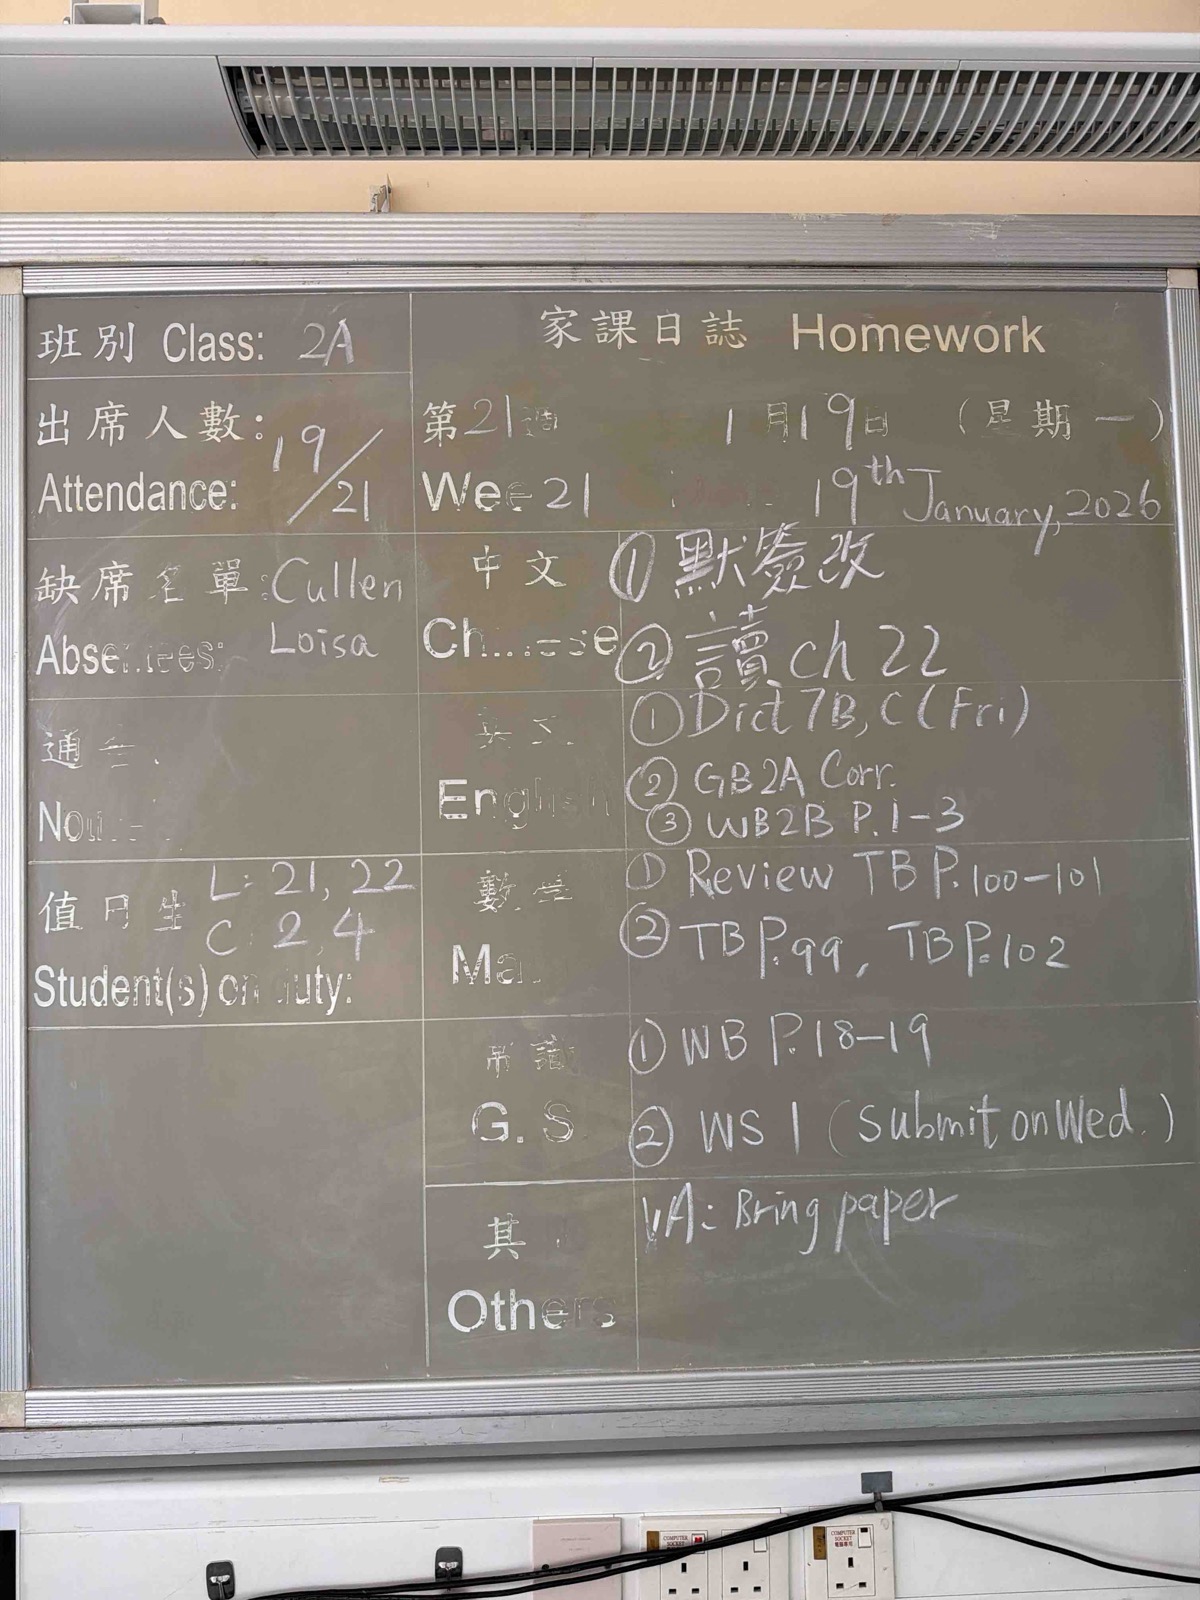 班別 Class: 2A
家課日誌 Homework
出席人數: 19/21
Attendance:
第21週 1月19日 (星期一)
Wee 21 19th January, 2026
缺席名單: Cullen
Absentees: Loisa
中文 ① 默簽改
Chinese ② 讀 ch 22
通告
英文 ① Dict 7B, C (Fri)
English ② GB2A Corr.
③ WB2B P.1-3
值日生 L: 21, 22
C: 2, 4
Student(s) on duty:
數學 ① Review TB P.100-101
Ma ② TB P.99, TB P.102
常識 ① WB P.18-19
G. S ② WS 1 (Submit on Wed.)
其 VA: Bring paper
Others
COMPUTER SOCKET
COMPUTER SOCKET
電腦專用